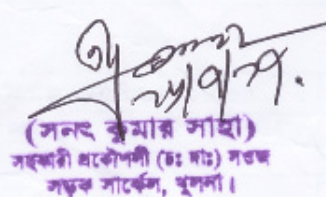 (সনৎ কুমার সাহা)
সহকারী প্রকৌশলী (চঃ দাঃ) সওজ
সড়ক সার্কেল, খুলনা।